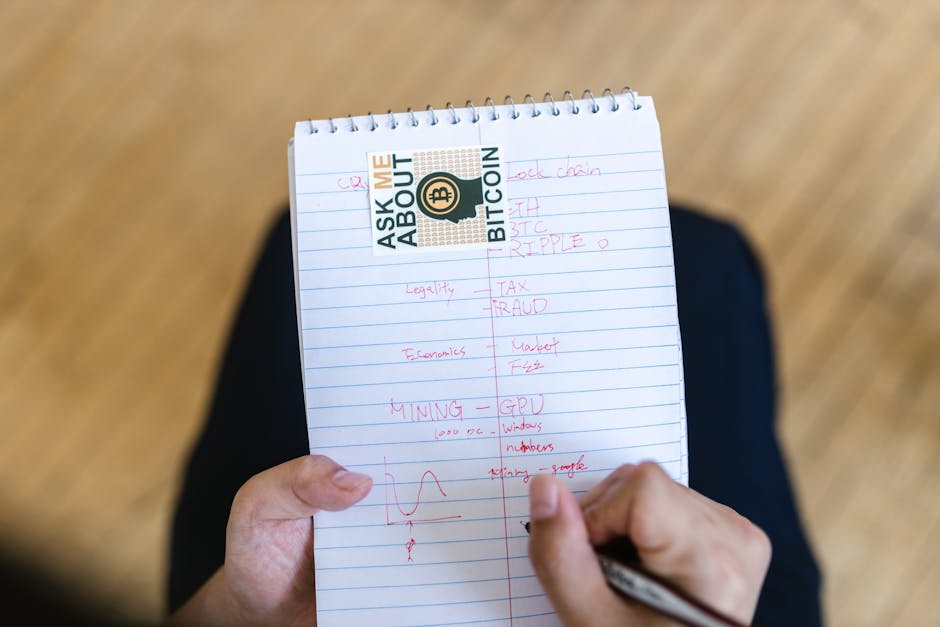 ASK ME
ABOUT
BITCOIN
lock chain
ETH
BTC
RIPPLE
Legality - TAX
- FRAUD
Economics - Market
- FEE
MINING - GPU
1000 pc - windows
numbers
Mining - google